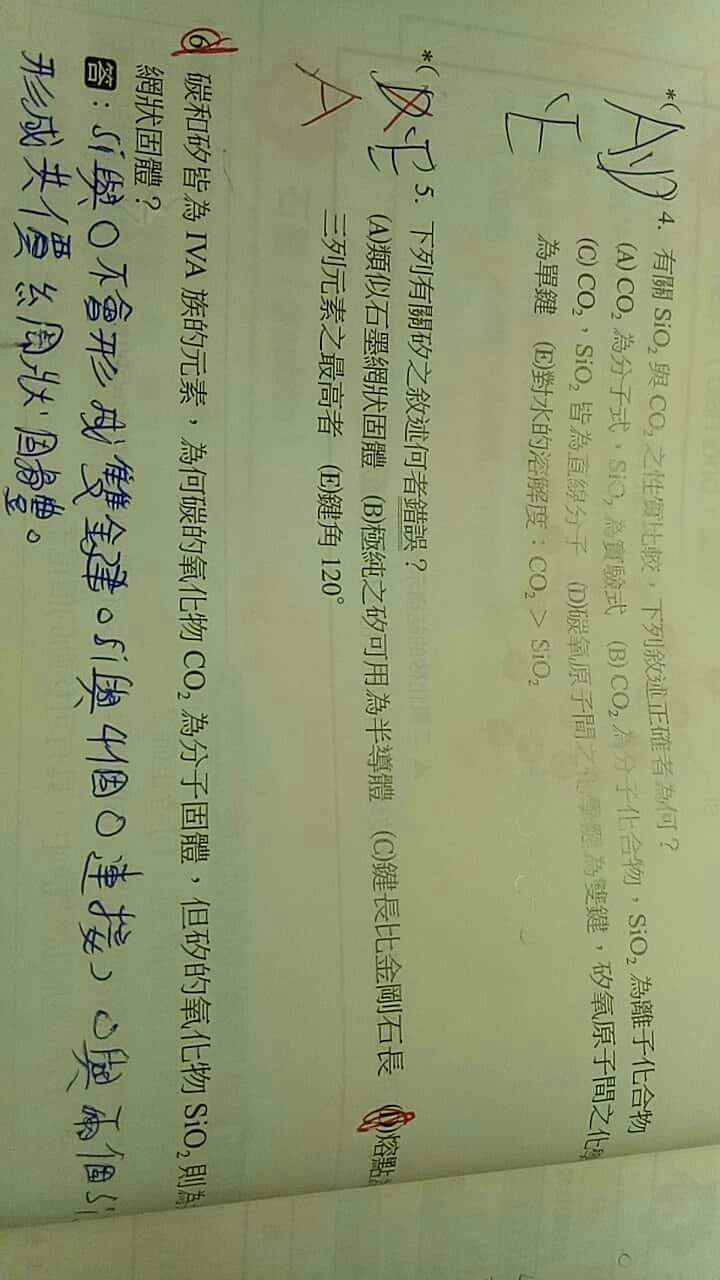 *(AD) 4. 有關 SiO₂ 與 CO₂ 之性質比較，下列敘述正確者為何？
E
(A) CO₂ 為分子式，SiO₂ 為實驗式 (B) CO₂ 為分子化合物，SiO₂ 為離子化合物
(C) CO₂，SiO₂ 皆為直線分子 (D)碳氧原子間之化學鍵為雙鍵，矽氧原子間之化學
為單鍵 (E)對水的溶解度：CO₂ > SiO₂
*( E 5. 下列有關矽之敘述何者錯誤？
A
(A)類似石墨網狀固體 (B)極純之矽可用為半導體 (C)鍵長比金剛石長 (D)熔點
三列元素之最高者 (E)鍵角 120°
6 碳和矽皆為 IVA 族的元素，為何碳的氧化物 CO₂ 為分子固體，但矽的氧化物 SiO₂ 則為
網狀固體？
答：Si與O不會形成雙鍵。Si與4個O連接，O與兩個Si
形成共價網狀固體。